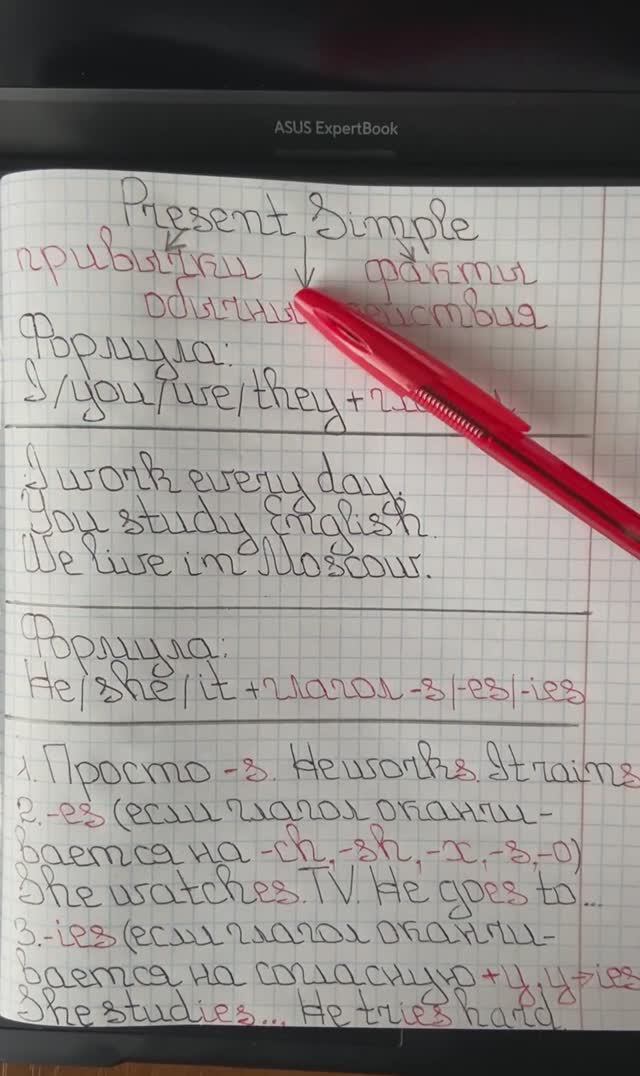 ASUS ExpertBook
Present Simple
привычки факты
обычны йствия
Формула:
I/you/we/they +
I work every day.
You study English.
We live in Moscow.
Формула:
He/she/it + глагол -s/-es/-ies
1. Просто -s. He works. It rains
2. -es (если глагол оканчи-
вается на -ch, -sh, -x, -s, -o)
She watches TV. He goes to...
3. -ies (если глагол оканчи-
вается на согласную + y, y→ies
She studies... He tries hard